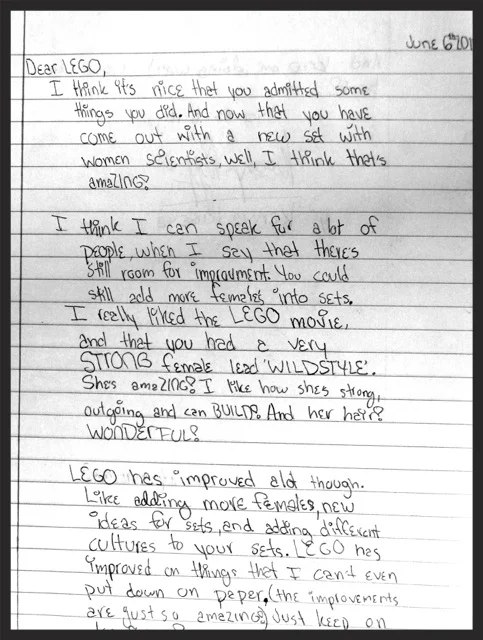 June 6th 201
Dear LEGO,
I think it's nice that you admitted some
things you did. And now that you have
come out with a new set with
women scientists, well, I think that's
amaZING!
I think I can speak for a lot of
people, when I say that there's
still room for improvment. You could
still add more females into sets.
I really liked the LEGO movie,
and that you had a very
STRONG female lead 'WILDSTYLE'.
She's amaZING! I like how shes strong,
outgoing and can BUILD! And her hair!
WONDERFUL!
LEGO has improved alot though.
Like adding more females, new
ideas for sets, and adding different
cultures to your sets. LEGO has
improved on things that I can't even
put down on peper. (the improvements
are just so amazing!) Just keep on